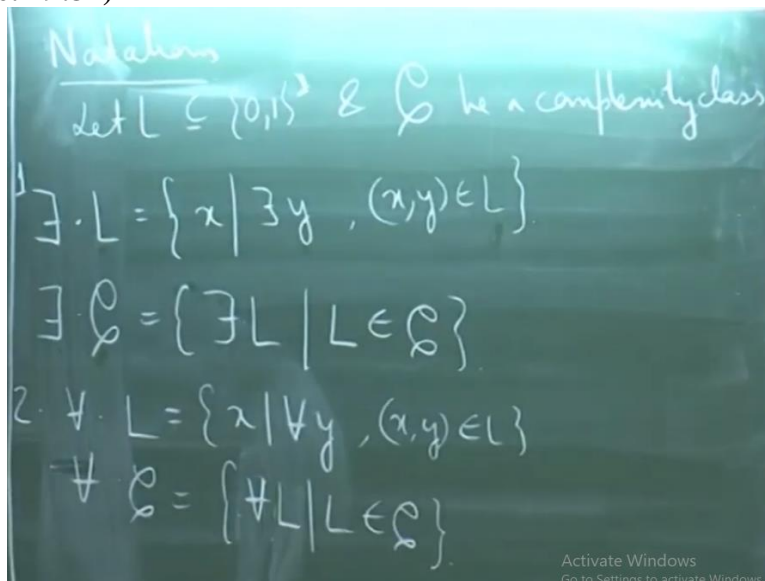 Notations
Let L ⊆ {0,1}* & 𝒞 be a complexity class
1 ∃·L = {x | ∃y, (x,y) ∈ L}.
∃·𝒞 = {∃L | L ∈ 𝒞}
2. ∀·L = {x | ∀y, (x,y) ∈ L}
∀ 𝒞 = {∀L | L ∈ 𝒞}.
Activate Windows
Go to Settings to activate Windows